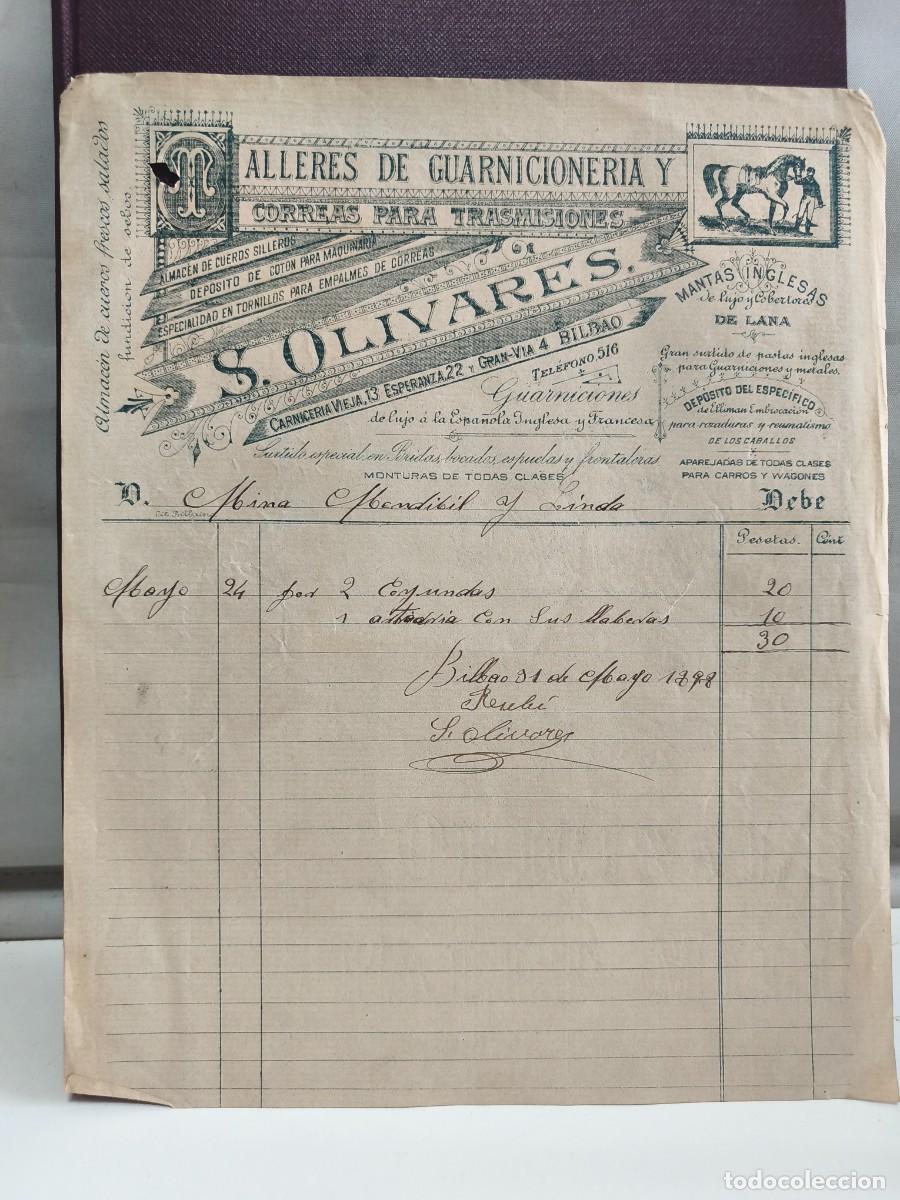 Almacén de cueros frescos, salados
fundicion de sebos
TALLERES DE GUARNICIONERIA Y
CORREAS PARA TRASMISIONES
ALMACEN DE CUEROS SILLEROS
DEPOSITO DE COTON PARA MAQUINARIA
ESPECIALIDAD EN TORNILLOS PARA EMPALMES DE CORREAS
S. OLIVARES.
CARNICERIA VIEJA, 13 ESPERANZA, 22 Y GRAN-VIA 4 BILBAO
TELEFONO, 516
Guarniciones
de lujo á la Española Inglesa y Francesa
Surtido especial en Bridas, bocados, espuelas y frontaleras
MONTURAS DE TODAS CLASES
MANTAS INGLESAS
de lujo y Cobertora
DE LANA
Gran surtido de pastas inglesas
para Guarniciones y metales.
DEPÓSITO DEL ESPECÍFICO
de Elliman Embrocacion
para rozaduras y reumatismo
DE LOS CABALLOS
APAREJADAS DE TODAS CLASES
PARA CARROS Y WAGONES
D. Mina Mendibil y Linda Debe
Lit. Bilbaina
Pesetas. Cént
Mayo 24 por 2 Coyundas 20
1 con sus llaberas 10
30
Bilbao 31 de Mayo 1898
Recibí
S. Olivares
todocoleccion